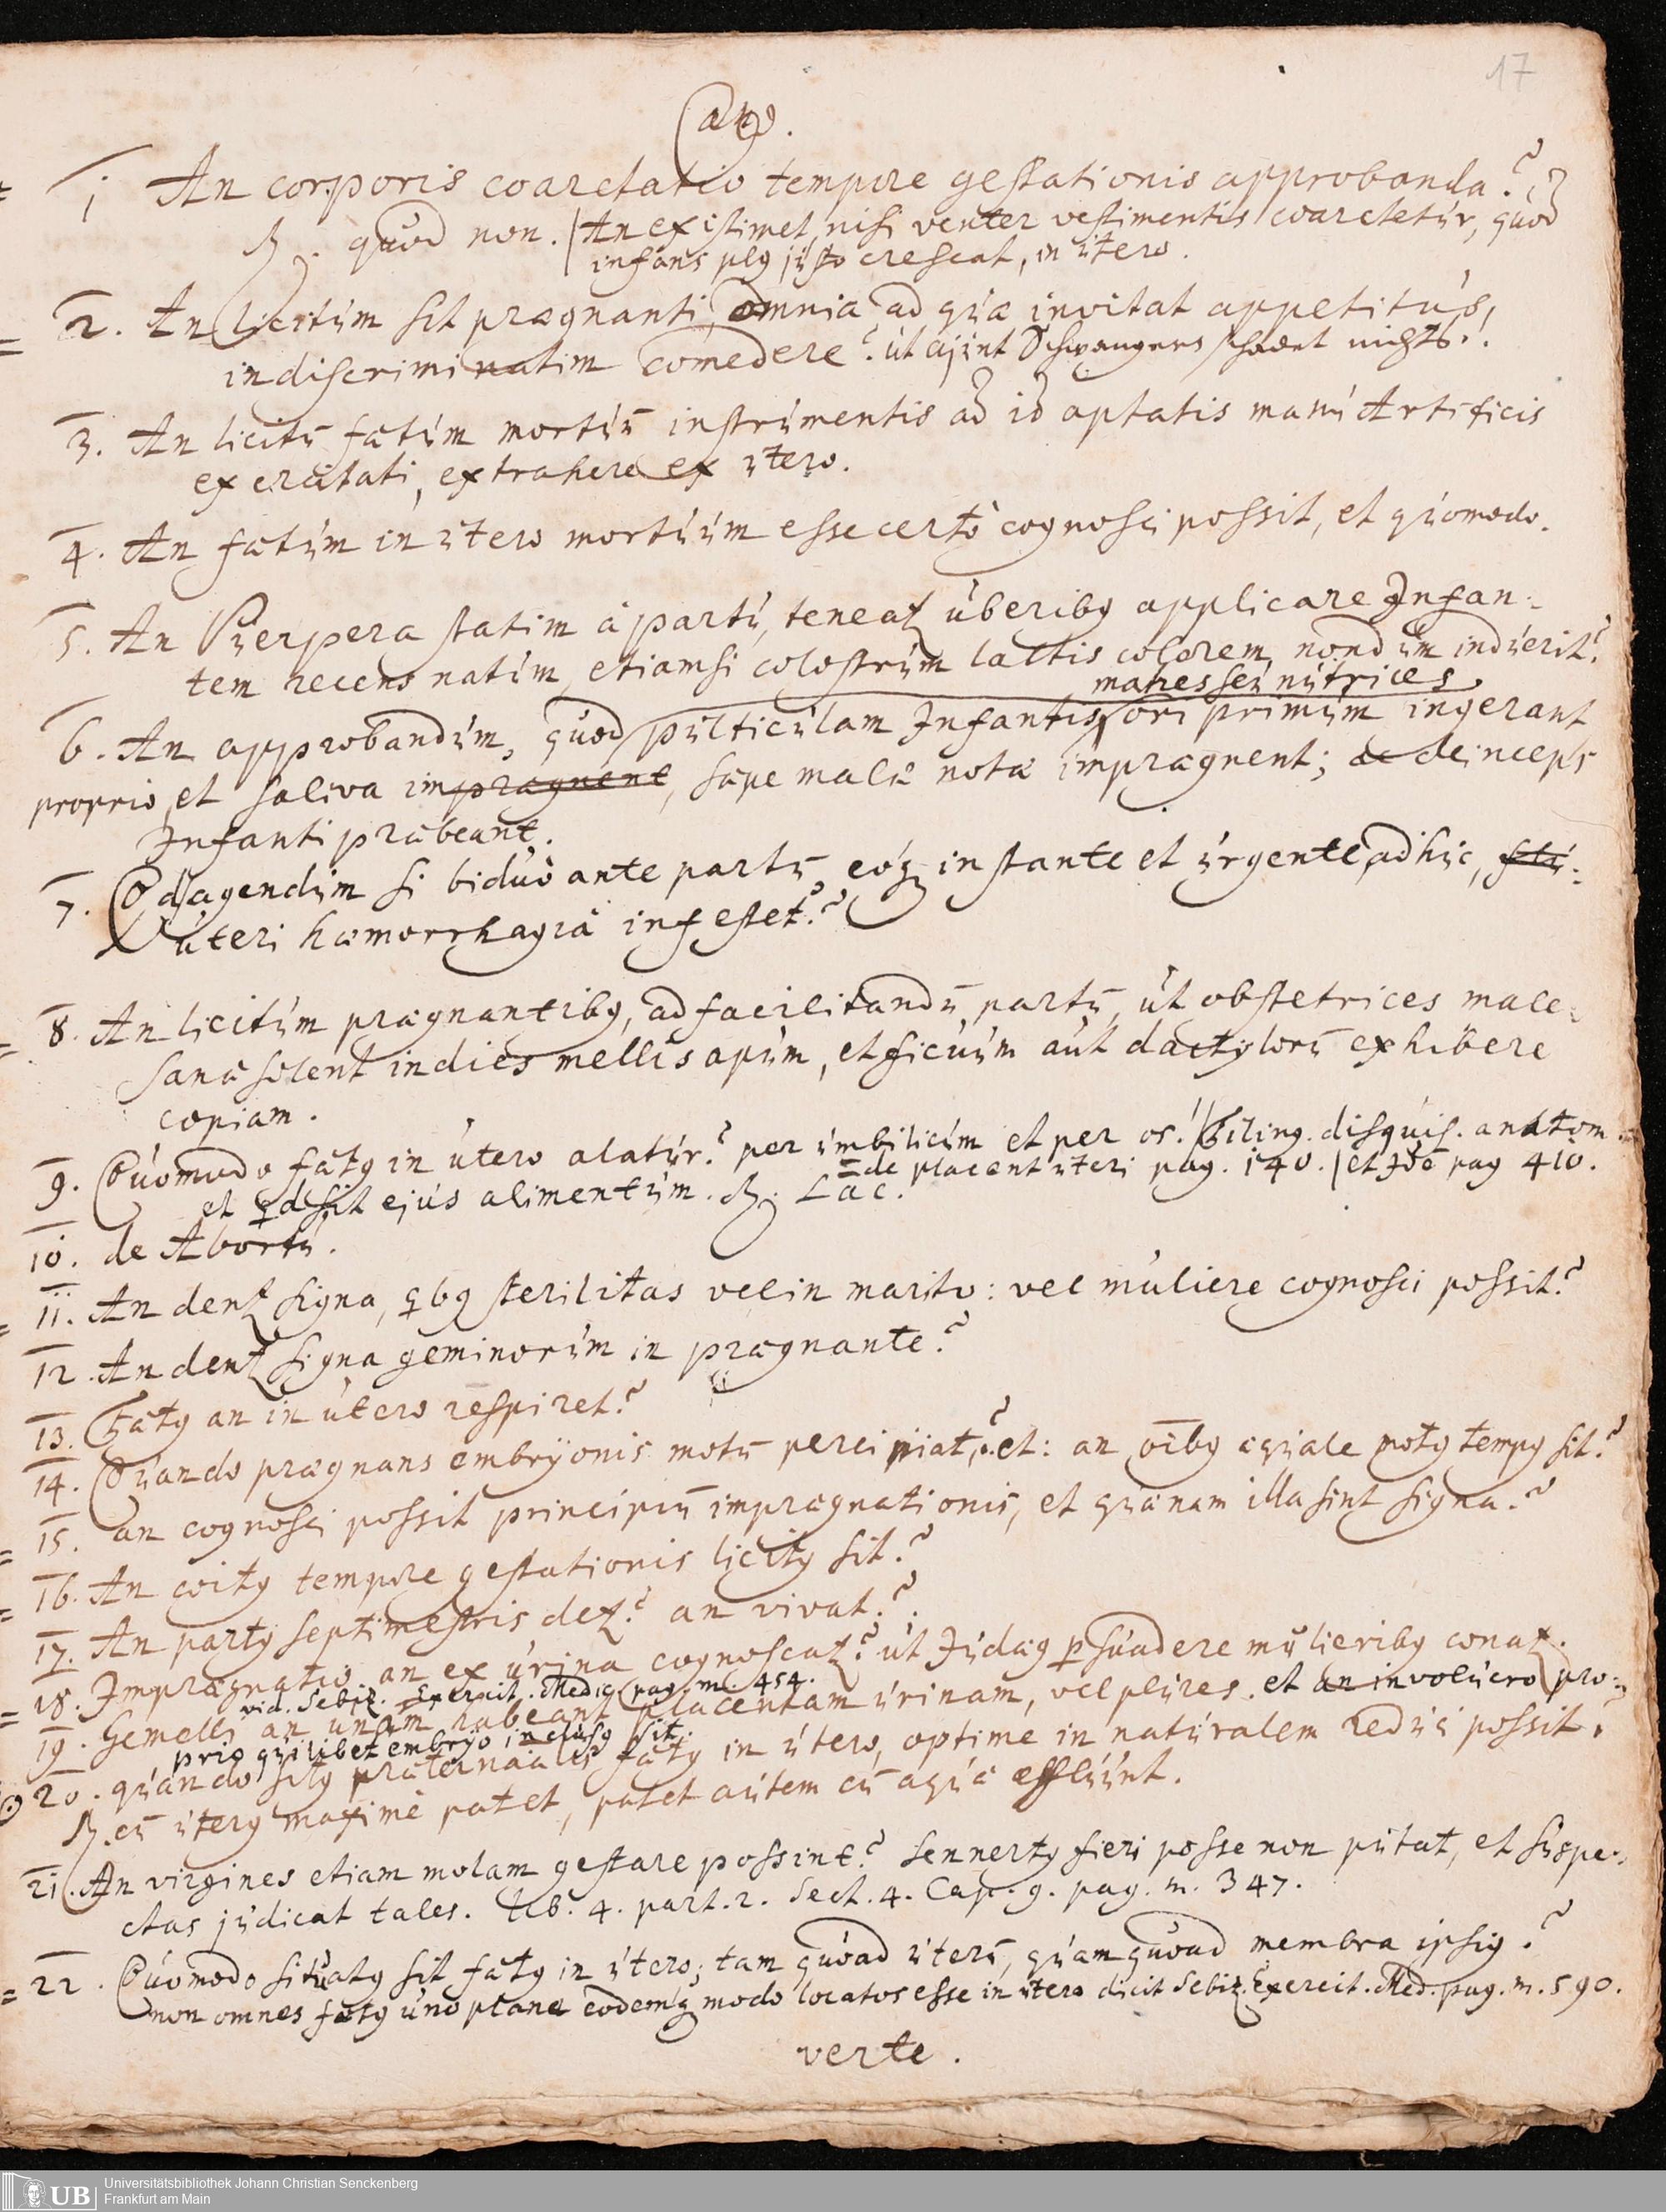 17
1 An corporis coarctatio tempore gestationis approbanda?
℞. quod non. | An existimet, nisi venter vestimentis coarctetur, quod
infans plq justo crescat, in utero.
2. An licitum sit prægnanti, omnia ad quæ invitat appetitus,
indiscriminatim comedere? ut ajunt Schwangers schadet nichts.!
3. An licitū fætum mortuū instrumentis ad id aptatis manu Artificis
exercitati, extrahere ex utero.
4. An fætum in utero mortuum esse certò cognosci possit, et quomodo.
5. An Puerpera statim à partu, teneat uberibq applicare Infan-
tem recens natum, etiamsi colostrum lactis colorem, nondum induerit?
matres seu nutrices
6. An approbandum, quod pulticulam Infantis, ori primum ingerant
proprio, et saliva impragnent, sæpe malæ notæ impragnent; de deinceps
Infanti præbeant.
7. Qd agendum si biduò ante partū, eóq instante et urgente, adhuc,
uteri hæmorrhagiâ infestet?
8. An licitum prægnantibq, ad facilitandū partū, ut obstetrices male
sanæ solent indies mellis apum, et ficuum aut dactylorū exhibere
copiam.
9. Quomodo fætq in utero alatur? per umbilicum et per os. // Biling. disquis. anatom.
de placent uteri pag. 140. | et Ide pag 410.
et qd sit ejus alimentum. ℞. Lac.
10. de Abortu.
11. An dent signa, qbq sterilitas vel in marito: vel muliere cognosci possit?
12. An dent signa geminorum in prægnante?
13. Fætq an in utero respiret?
14. Quando prægnans embryonis motū percipiat? et: an oībq æquale motq tempq sit?
15. an cognosci possit principiū imprægnationis, et quænam illa sint signa?
16. An coitq tempore gestationis licitq sit?
17. An partq septimestris det? an vivat?
18. Imprægnatio an ex urina cognoscat? ut Judæq psuadere mulieribq conat.
vid. Sebiz. Exercit. Medic pag. m. 454.
19. Gemelli an unam habeant placentam urinam, vel plures. et an involucro pro-
prio quilibet embryo inclusq sit.
20. quando sitq præternaālis fætq in utero, optime in naturalem reduci possit.
℞. cū uterq maximè patet, patet autem cū aquæ effluunt.
21. An virgines etiam molam gestare possint? Sennertq fieri posse non putat, et suspe-
ctas judicat tales. lib. 4. part. 2. Sect. 4. Cap. 9. pag. m. 347.
22. Quomodo situatq sit fætq in utero; tam quoad uterū, quam quoad membra ipsiq?
non omnes fætq uno plane eodemq modo locatos esse in utero dicit Sebiz. Exercit. Med. pag. m. 590.
verte.
UB
Universitätsbibliothek Johann Christian Senckenberg
Frankfurt am Main